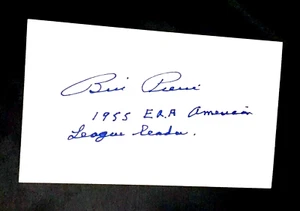 Bill Pierce
1955 E.R.A American
League leader.